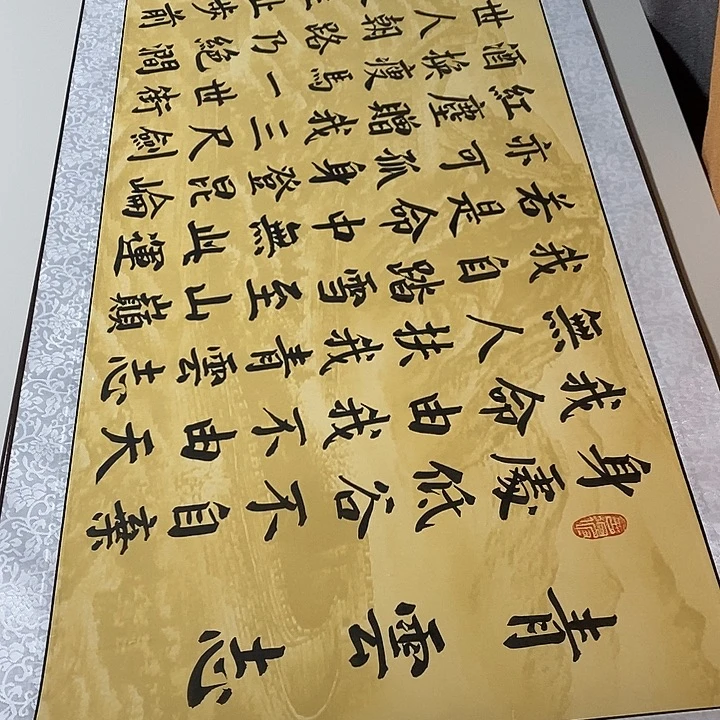 青雲志
身處低谷不自棄
我命由我不由天
無人扶我青雲志
我自踏雪至山巔
若是命中無此運
亦可孤身登昆崙
紅塵贈我三尺劍
酒換瘦馬一世街
世人朝路乃絕澗
止步前